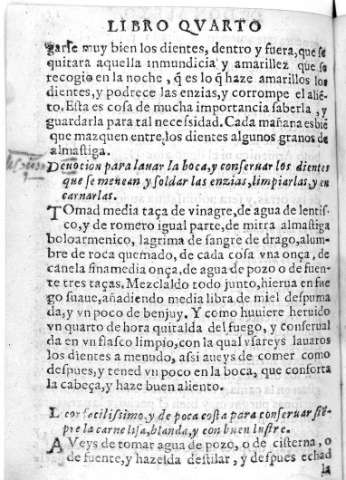 LIBRO QVARTO
garse muy bien los dientes, dentro y fuera, que se
quitara aquella inmundicia y amarillez que se
recogio en la noche, q̃ es lo q̃ haze amarillos los
dientes, y podrece las enzias, y corrompe el aliẽ-
to. Esta es cosa de mucha importancia saberla, y
guardarla para tal necessidad. Cada mañana es biẽ
que mazquen entre los dientes algunos granos de
almastiga.
Deuocion para lauar la boca, y conseruar los dientes
que se menean y soldar las enzias, limpiarlas, y en
carnarlas.
TOmad media taça de vinagre, de agua de lentis-
co, y de romero igual parte, de mirra almastiga
boloarmenico, lagrima de sangre de drago, alum-
bre de roca quemado, de cada cosa vna onça, de
canela fina media onça, de agua de pozo o de fuen-
te tres taças. Mezclaldo todo junto, hierua en fue
go suaue, añadiendo media libra de miel despuma
da, y vn poco de benjuy. Y como huuiere heruido
vn quarto de hora quitalda del fuego, y conserual
da en vn flasco limpio, con la qual vsareys lauaros
los dientes a menudo, assi aueys de comer como
despues, y tened vn poco en la boca, que conforta
la cabeça, y haze buen aliento.
Leor facilissimo, y de poca costa para conseruar siẽ-
pre la carne lisa, blanda, y con buen lustre.
AVeys de tomar agua de pozo, o de cisterna, o
de fuente, y hazelda destilar, y despues echad
la